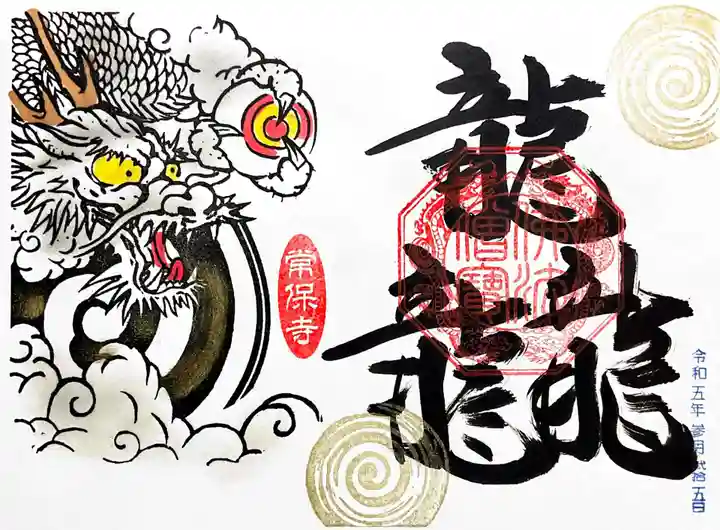 龍
龍龍
佛法
僧寶
常保寺
令和五年 参月弐拾五日